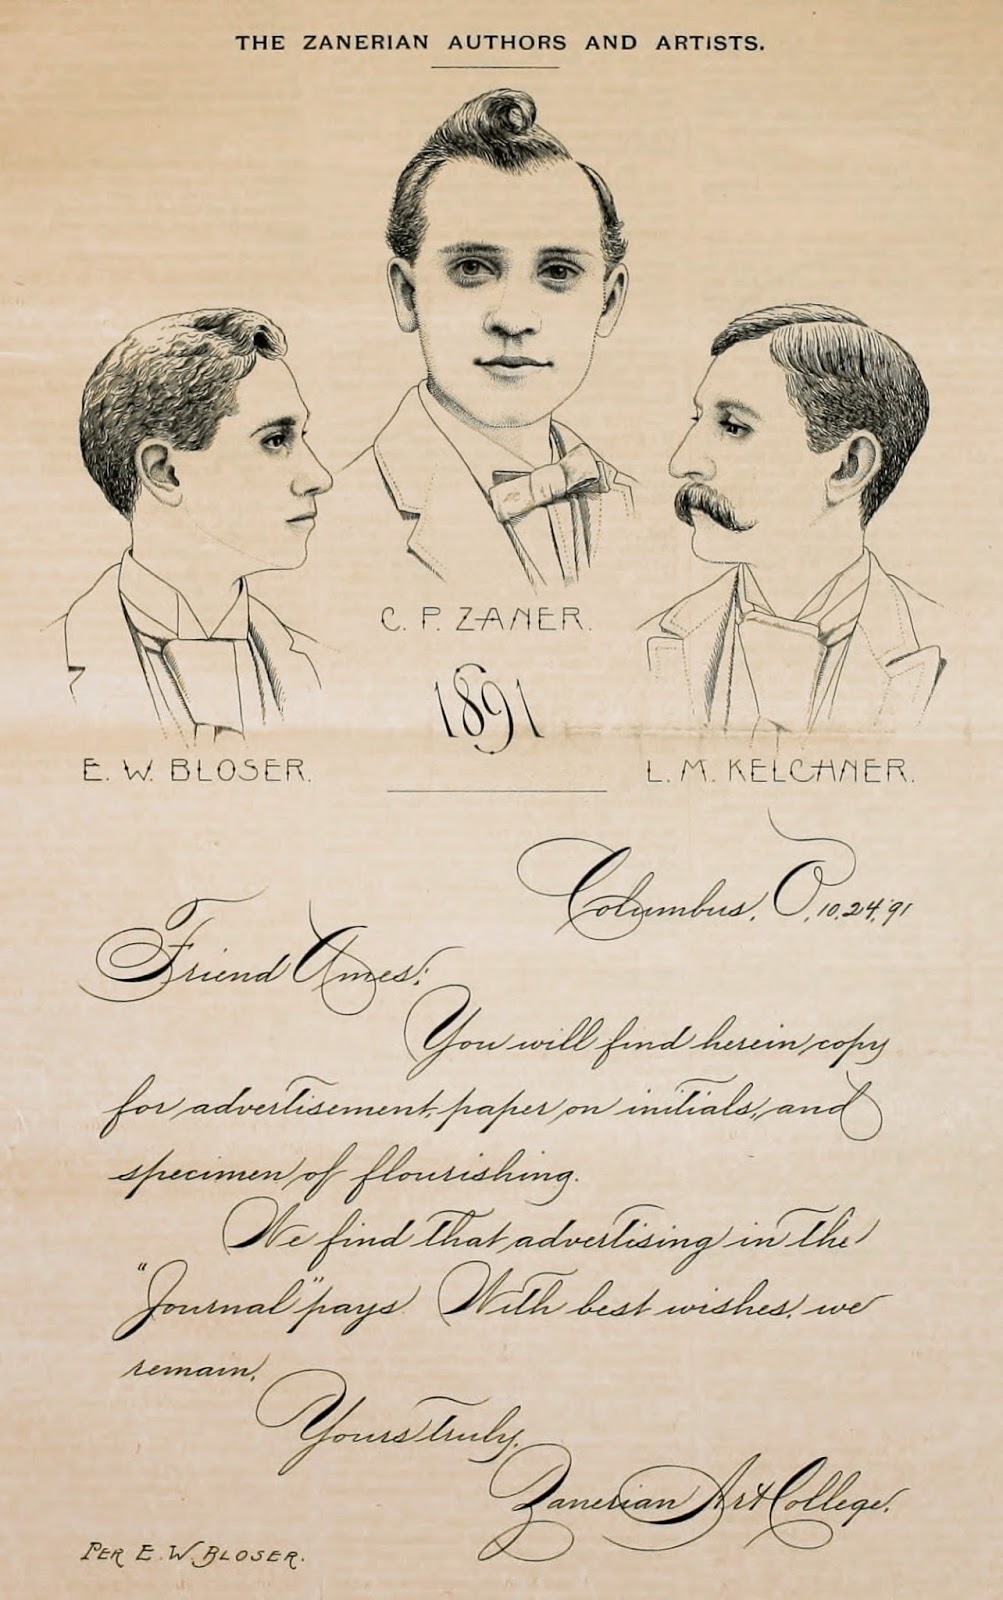 THE ZANERIAN AUTHORS AND ARTISTS.
C. P. ZANER.
1891
E. W. BLOSER.
L. M. KELCHNER.
Columbus, O, 10, 24, '91
Friend Ames:
You will find herein copy
for advertisement, paper on initials, and
specimen of flourishing.
We find that advertising in the
"Journal" pays. With best wishes, we
remain,
Yours truly,
Zanerian Art College.
PER E. W. BLOSER.